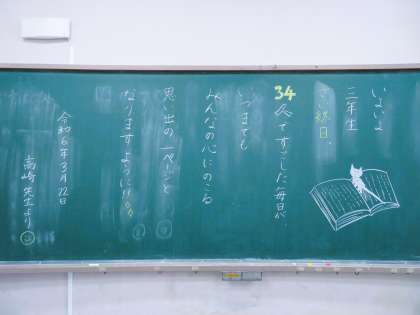 いよいよ
三年生
さい終日。
34人ですごした毎日が
いつまでも
みんなの心にのこる
思い出の一ページと
なりますように!!
令和6年3月22日
高崎先生より